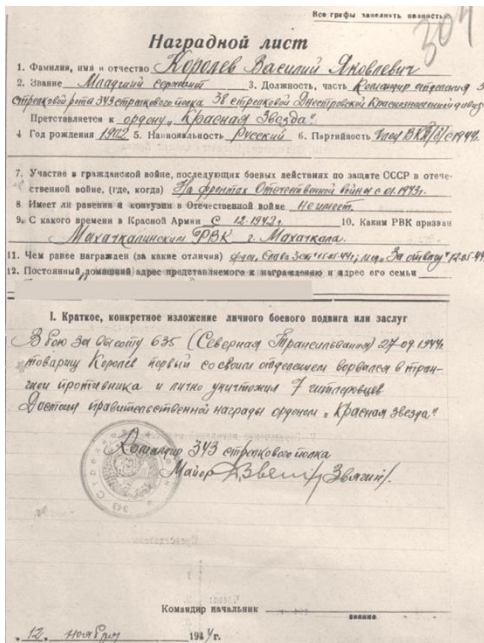 Все графы заполнять полностью
304
Наградной лист
1. Фамилия, имя и отчество Королев Василий Яковлевич
2. Звание Младший сержант 3. Должность, часть Командир отделения
стрелковой роты 343 стрелкового полка 38 стрелковой Днестровской Краснознаменной дивиз
Преставляется к ордену „Красная Звезда"
4 Год рождения 1912 5. Национальность Русский 6. Партийность Член ВКП(б) с 1944
7. Участие в гражданской войне, последующих боевых действиях по защите СССР в отече-
ственной войне, (где, когда) На фронтах Отечественной войны с 01.1943г.
8. Имеет ли ранения и контузии в Отечественной войне не имеет.
9. С какого времени в Красной Армии с 12.1942г. 10. Каким РВК призван
Махачкалинским РВК г. Махачкала.
11. Чем ранее награжден (за какие отличия) Слава 15.05.44г., „За отвагу" 12.05.44
12. Постоянный домашний адрес представляемого к награждению и адрес его семьи
I. Краткое, конкретное изложение личного боевого подвига или заслуг
В бою за высоту 635 (Северная Трансильвания) 27.09.1944г.
товарищ Королев первый со своим отделением ворвался в тран-
шеи противника и лично уничтожил 7 гитлеровцев
Достоин правительственной награды орденом „Красная звезда"
Командир 343 стрелкового полка
Майор /Звягин/.
Командир начальник
звание
„12" ноября 1944г.